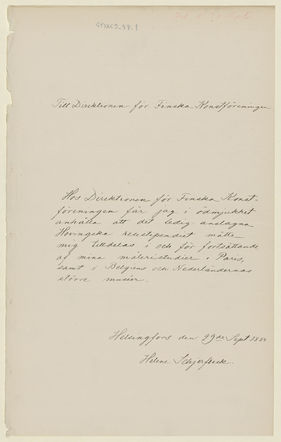 Till Direktionen för Finska Konstföreningen
Hos Direktionen för Finska Konst-
föreningen får jag i ödmjukhet
anhålla att det ledig anslagna
Hovingska resestipendiet måtte
mig tilldelas i och för fortsättande
af mina måleristudier i Paris,
samt i Belgiens och Nederländernas
större muséer.
Helsingfors den 29de Sept.
Helene Schjerfbeck